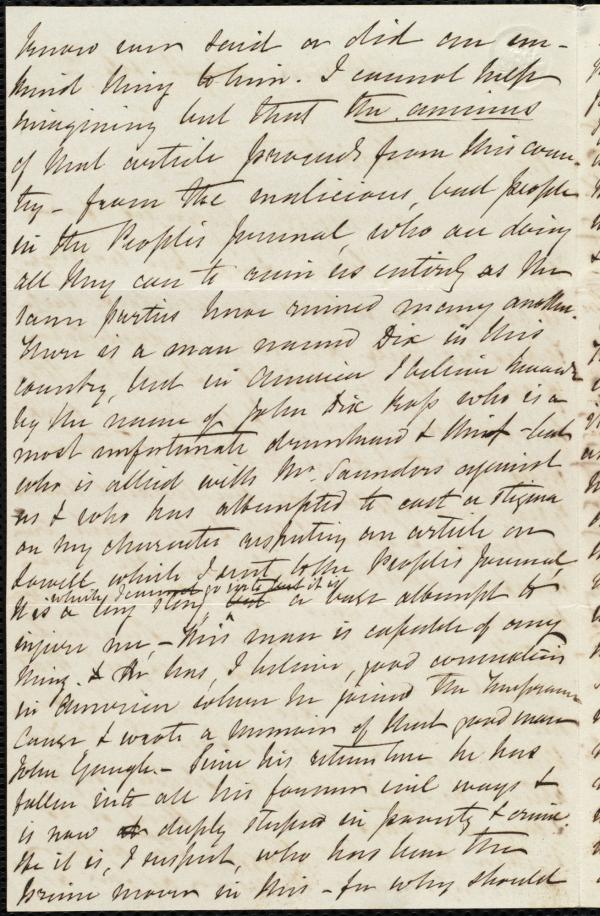 know ever said or did an un-
kind thing to him. I cannot help
imagining but that the animus
of that article proceeds from this coun-
try - from the malicious, bad people
in the People's Journal, who are doing
all they can to ruin us entirely as the
same parties have ruined many another.
There is a man named Dix in this
country, but in America I believe known
by the name of John Dix Ross who is a
most unfortunate drunkard & thief - but
who is allied with Mr. Saunders against
us & who has attempted to cast a stigma
on my character respecting an article on
Lowell which I sent to the People's Journal
which I cannot go into but it is
It is a long story a base attempt to
injure me, - This man is capable of any
thing. & He has, I believe, good connections
in America where he joined the Temperance
Cause & wrote a memoir of that good man
John Gough. - Since his return here he has
fallen into all his former evil ways &
is now deeply steeped in poverty & crime.
He it is, I suspect, who has been the
prime mover in this - for why should